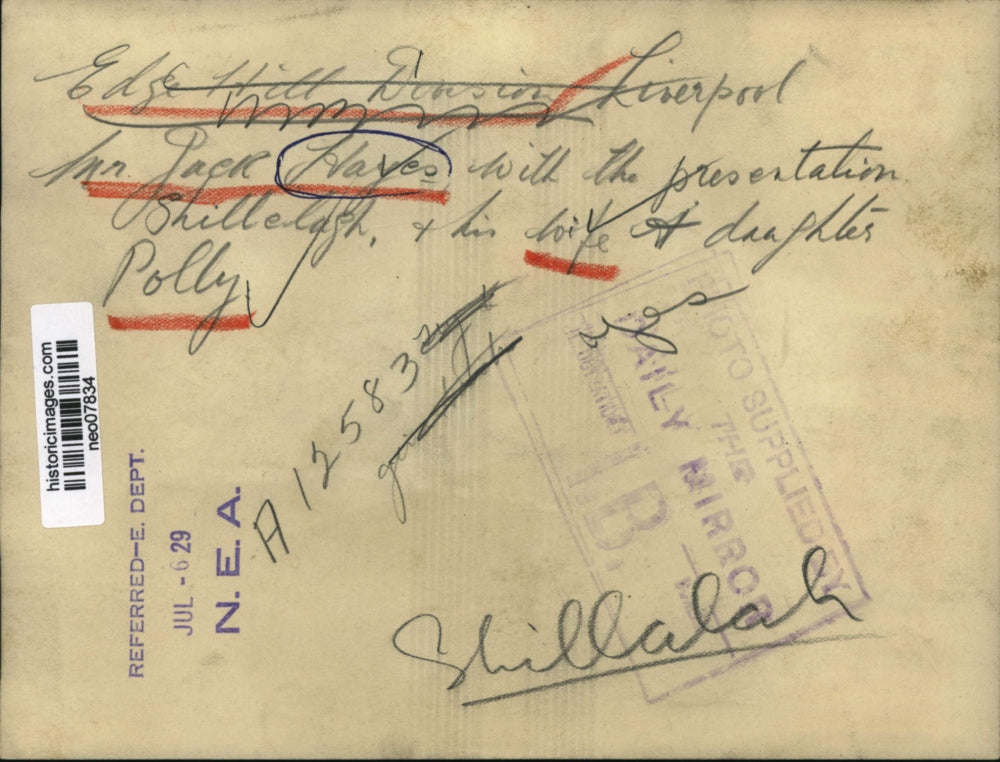 Edge Hill Division Liverpool
Mr. Jack Hayes with the presentation
Shillelagh, & his wife & daughter
Polly
Yes
A125833
historicimages.com
neo07834
REFERRED—E. DEPT.
JUL - 6 29
N. E. A.
PHOTO SUPPLIED BY
THE
DAILY MIRROR
B
Shillalah